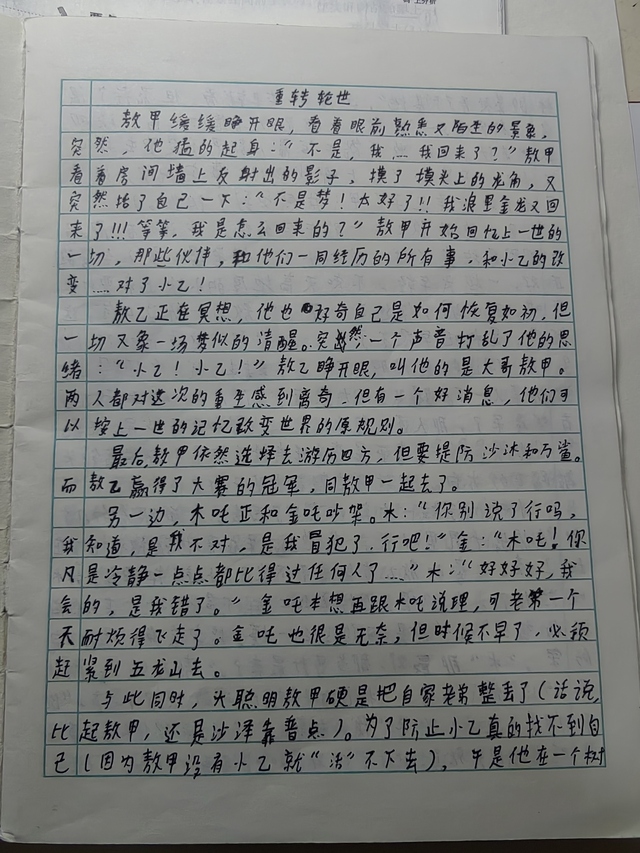 重转轮世
敖甲缓缓睁开眼，看着眼前熟悉又陌生的景象，
突然，他猛的起身：“不是，我……我回来了？”敖甲
看着房间墙上反射出的影子，摸了摸头上的龙角，又
突然掐了自己一下：“不是梦！太好了!!我浪里金龙又回
来了!!!等等，我是怎么回来的？”敖甲开始回忆上一世的
一切，那些伙伴，和他们一同经历的所有事，和小乙的改
变……对了小乙！
敖乙正在冥想，他也好奇自己是如何恢复如初，但
一切又象一场梦似的清醒。突然，一个声音打乱了他的思
绪：“小乙！小乙！”敖乙睁开眼，叫他的是大哥敖甲。
两人都对这次的重生感到离奇，但有一个好消息，他们可
以按上一世的记忆改变世界的原规划。
最后，敖甲依然选择去游历四方，但要提防沙沐和万鲨。
而敖乙赢得了大赛的冠军，同敖甲一起去了。
另一边，木吒正和金吒吵架。木：“你别说了行吗，
我知道，是我不对，是我冒犯了，行吧！”金：“木吒！你
凡是冷静一点点都比得过任何人了……”木：“好好好，我
会的，是我错了。”金吒本想再跟木吒说理，可老第一个
不耐烦得飞走了。金吒也很是无奈，但时候不早了，必须
赶紧到五龙山去。
与此同时，大聪明敖甲硬是把自家老弟整丢了（话说，
比起敖甲，还是沙泽靠普点）。为了防止小乙真的找不到自
己（因为敖甲没有小乙就“活”不下去），于是他在一个树